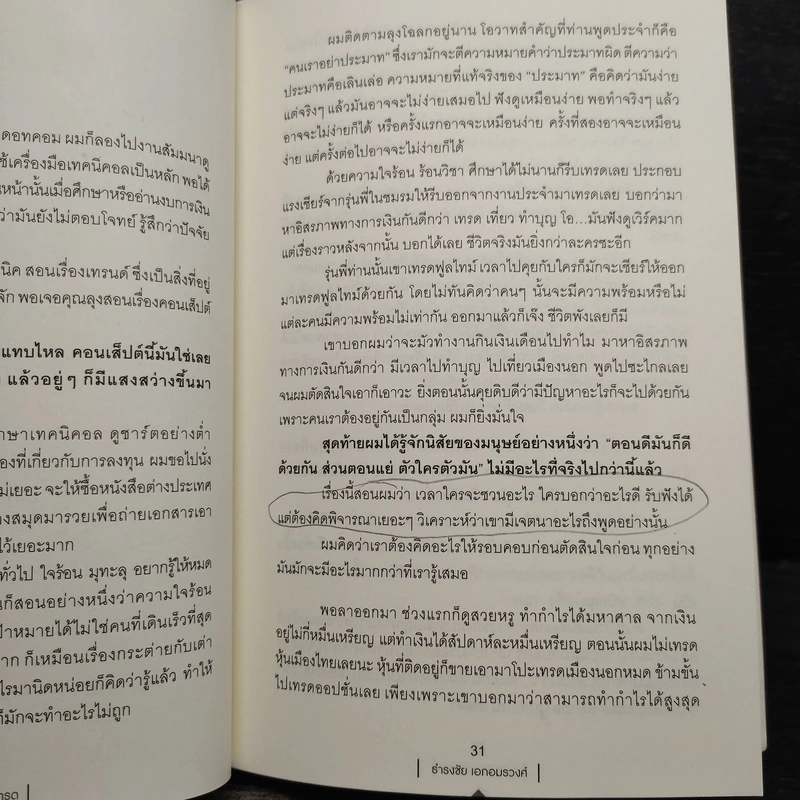 ดอทคอม ผมก็ลองไปงานสัมมนาดู
ช้เครื่องมือเทคนิคอลเป็นหลัก พอได้
หน้านั้นเมื่อศึกษาหรืออ่านงบการเงิน
ว่ามันยังไม่ตอบโจทย์ รู้สึกว่าปัจจัย
นิค สอนเรื่องเทรนด์ ซึ่งเป็นสิ่งที่อยู่
จัก พอเจอคุณลุงสอนเรื่องคอนเส็ปต์
แทบไหล คอนเส็ปต์นี้มันใช่เลย
แล้วอยู่ๆ ก็มีแสงสว่างขึ้นมา
กษาเทคนิคอล ดูชาร์ตอย่างต่ำ
องที่เกี่ยวกับการลงทุน ผมขอไปนั่ง
ม่เยอะ จะให้ซื้อหนังสือต่างประเทศ
างสมุดมารวยเพื่อถ่ายเอกสารเอา
ไว้เยอะมาก
ทั่วไป ใจร้อน มุทะลุ อยากรู้ให้หมด
นก็สอนอย่างหนึ่งว่าความใจร้อน
ป้าหมายได้ไม่ใช่คนที่เดินเร็วที่สุด
าก ก็เหมือนเรื่องกระต่ายกับเต่า
ไรมานิดหน่อยก็คิดว่ารู้แล้ว ทำให้
ก็มักจะทำอะไรไม่ถูก
ทรด
ผมติดตามลุงโฉลกอยู่นาน โอวาทสำคัญที่ท่านพูดประจำก็คือ
“คนเราอย่าประมาท” ซึ่งเรามักจะตีความหมายคำว่าประมาทผิด ตีความว่า
ประมาทคือเลินเล่อ ความหมายที่แท้จริงของ “ประมาท” คือคิดว่ามันง่าย
แต่จริงๆ แล้วมันอาจจะไม่ง่ายเสมอไป ฟังดูเหมือนง่าย พอทำจริงๆ แล้ว
อาจจะไม่ง่ายก็ได้ หรือครั้งแรกอาจจะเหมือนง่าย ครั้งที่สองอาจจะเหมือน
ง่าย แต่ครั้งต่อไปอาจจะไม่ง่ายก็ได้
ด้วยความใจร้อน ร้อนวิชา ศึกษาได้ไม่นานก็รีบเทรดเลย ประกอบ
แรงเชียร์จากรุ่นพี่ในชมรมให้รีบออกจากงานประจำมาเทรดเลย บอกว่ามา
หาอิสรภาพทางการเงินกันดีกว่า เทรด เที่ยว ทำบุญ โอ...มันฟังดูเวิร์คมาก
แต่เรื่องราวหลังจากนั้น บอกได้เลย ชีวิตจริงมันยิ่งกว่าละครซะอีก
รุ่นพี่ท่านนั้นเขาเทรดฟูลไทม์ เวลาไปคุยกับใครก็มักจะเชียร์ให้ออก
มาเทรดฟูลไทม์ด้วยกัน โดยไม่ทันคิดว่าคนๆ นั้นจะมีความพร้อมหรือไม่
แต่ละคนมีความพร้อมไม่เท่ากัน ออกมาแล้วก็เจ๊ง ชีวิตพังเลยก็มี
เขาบอกผมว่าจะมัวทำงานกินเงินเดือนไปทำไม มาหาอิสรภาพ
ทางการเงินกันดีกว่า มีเวลาไปทำบุญ ไปเที่ยวเมืองนอก พูดไปซะไกลเลย
จนผมตัดสินใจเอาก็เอาวะ ยิ่งตอนนั้นคุยดิบดีว่ามีปัญหาอะไรก็จะไปด้วยกัน
เพราะคนเราต้องอยู่กันเป็นกลุ่ม ผมก็ยิ่งมั่นใจ
สุดท้ายผมได้รู้จักนิสัยของมนุษย์อย่างหนึ่งว่า “ตอนดีมันก็ดี
ด้วยกัน ส่วนตอนแย่ ตัวใครตัวมัน” ไม่มีอะไรที่จริงไปกว่านี้แล้ว
เรื่องนี้สอนผมว่า เวลาใครจะชวนอะไร ใครบอกว่าอะไรดี รับฟังได้
แต่ต้องคิดพิจารณาเยอะๆ วิเคราะห์ว่าเขามีเจตนาอะไรถึงพูดอย่างนั้น
ผมคิดว่าเราต้องคิดอะไรให้รอบคอบก่อนตัดสินใจก่อน ทุกอย่าง
มันมักจะมีอะไรมากกว่าที่เรารู้เสมอ
พอลาออกมา ช่วงแรกก็ดูสวยหรู ทำกำไรได้มหาศาล จากเงิน
อยู่ไม่กี่หมื่นเหรียญ แต่ทำเงินได้สัปดาห์ละหมื่นเหรียญ ตอนนั้นผมไม่เทรด
หุ้นเมืองไทยเลยนะ หุ้นที่ติดอยู่ก็ขายเอามาโปะเทรดเมืองนอกหมด ข้ามขั้น
ไปเทรดออปชั่นเลย เพียงเพราะเขาบอกมาว่าสามารถทำกำไรได้สูงสุด
31
ธำรงชัย เอกอมรวงศ์